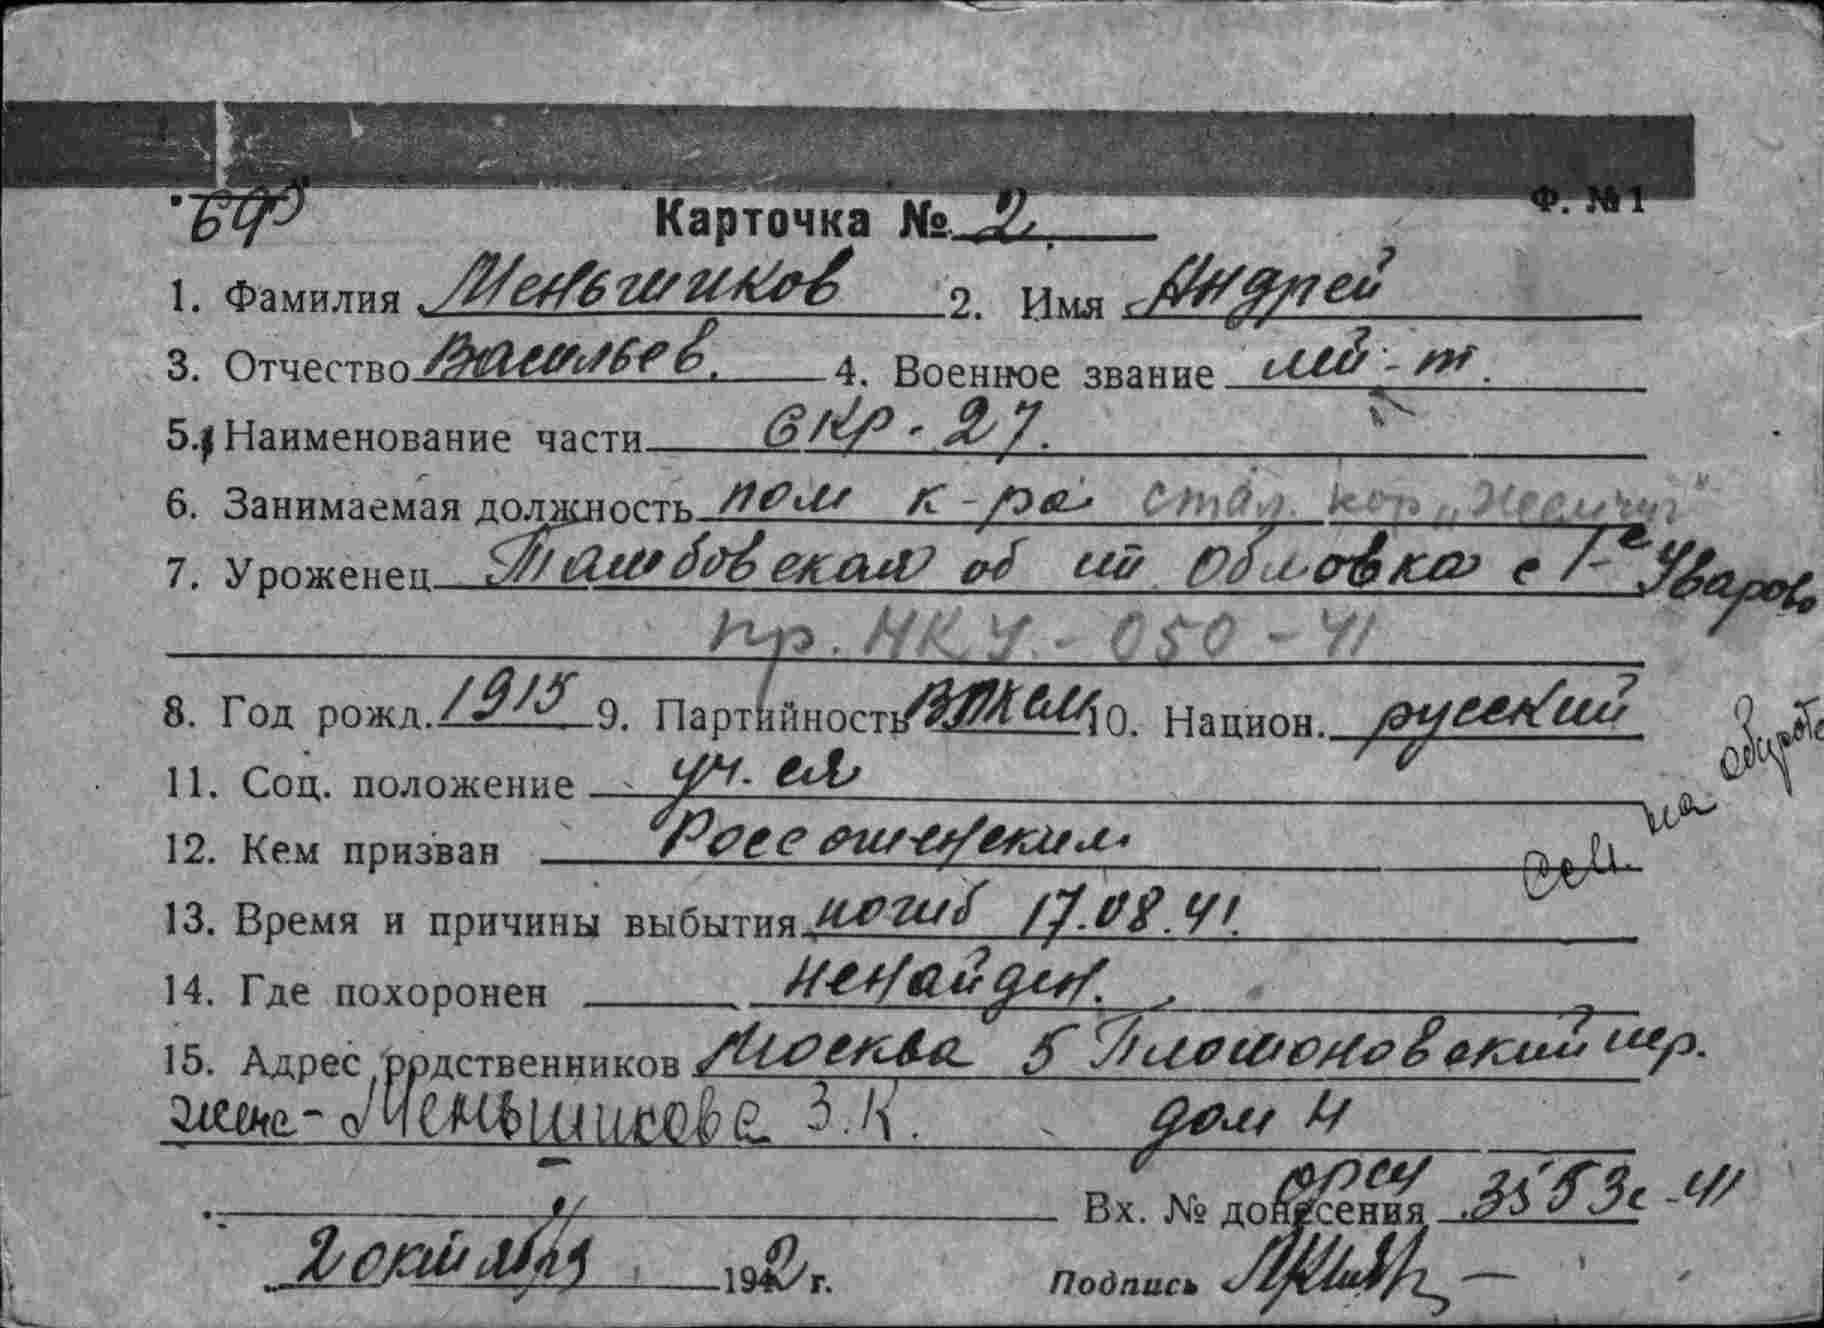 Ф. №1
695 Карточка № 2.
1. Фамилия Меньшиков 2. Имя Андрей
3. Отчество Васильев. 4. Военное звание лей-т.
5. Наименование части СКР-27.
6. Занимаемая должность пом к-ра стаж. кор „Жемчуг"
7. Уроженец Тамбовская об ст Обловка с 1-е Уварово
пр. НКУ.-050-41
8. Год рожд. 1915 9. Партийность ВЛКСМ 10. Национ. русский
11. Соц. положение уч. ся
12. Кем призван Россошенским
см. на обороте
13. Время и причины выбытия погиб 17.08.41.
14. Где похоронен ненайден.
15. Адрес родственников Москва 5 пер.
жена - Меньшикова З.К. дом 4
Вх. № донесения 3553с-41
2 октября 1942 г. Подпись